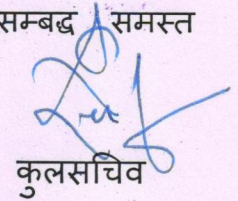 सम्बद्ध समस्त
कुलसचिव